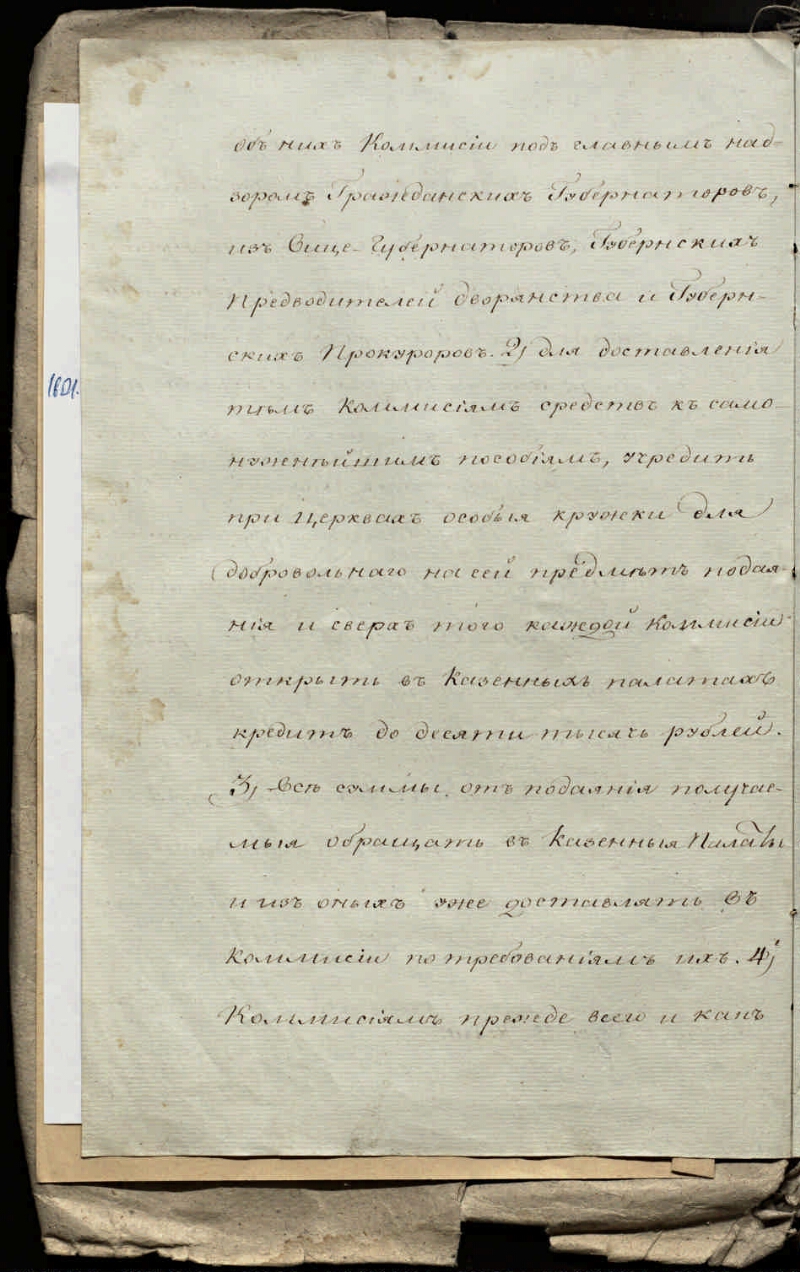 объ нихъ Коммисіи подъ главнымъ над-
зоромъ Гражданскихъ Губернаторовъ,
изъ Вице-Губернаторовъ, Губернскихъ
Предводителей дворянства и Губерн-
скихъ Прокуроровъ. 2) для доставленія
тѣмъ Коммисіямъ средствъ къ само-
нужнѣйшимъ пособіямъ, учредить
при Церквахъ особыя кружки для
добровольнаго на сей предмѣтъ подая-
нія и сверхъ того каждой Коммисіи
открыть въ Казенныхъ палатахъ
кредитъ до десяти тысячь рублей.
3) Всѣ суммы, отъ подаянія получае-
мыя обращать въ Казенныя Палаты
и изъ оныхъ уже доставлять въ
Коммисіи по требованіямъ ихъ. 4)
Коммисіямъ прежде всего и какъ